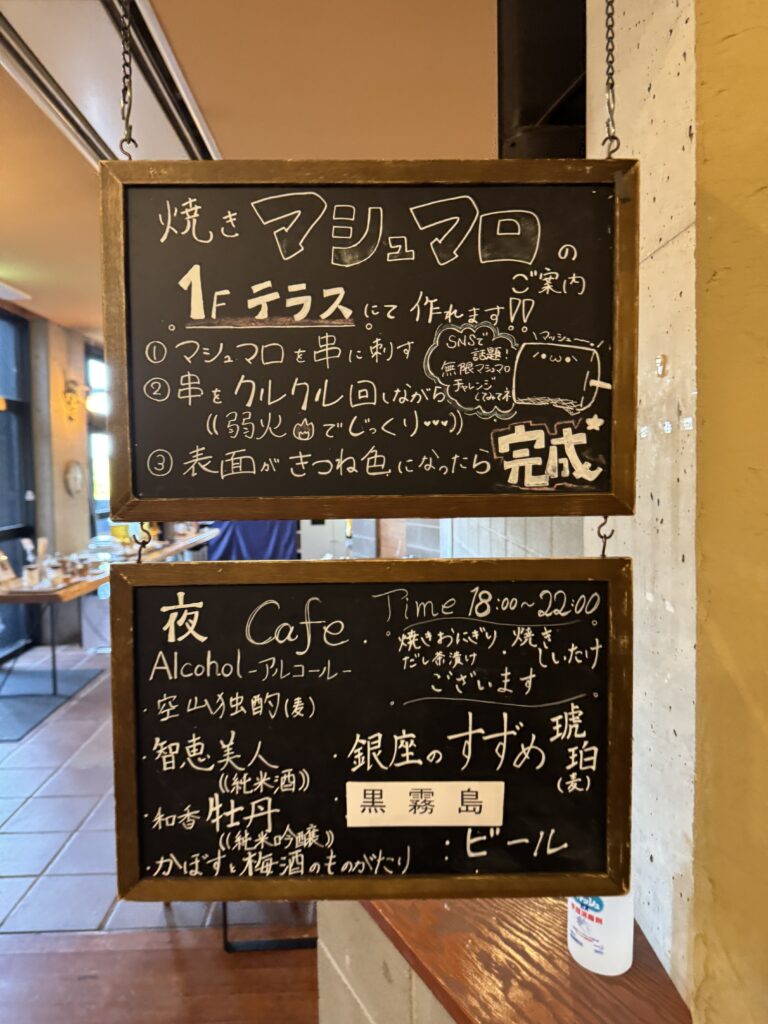 焼き マシュマロ の
ご案内
1F テラス にて 作れます!!
① マシュマロを串に刺す
② 串を クルクル 回しながら
((弱火でじっくり♥♥♥))
③ 表面が きつね色 になったら
完成
SNSで
話題!
無限マシュマロ
チャレンジ
してみてネ
\マッシュー/
・ω・
夜 Cafe
Time 18:00~22:00
焼きおにぎり ・焼き
だし茶漬け しいたけ
ございます
Alcohol -アルコール-
・空山独酌(麦)
・智恵美人
((純米酒))
・和香牡丹
((純米吟醸))
・かぼすと梅酒のものがたり
・銀座のすずめ 琥珀
(麦)
・黒霧島
:ビール